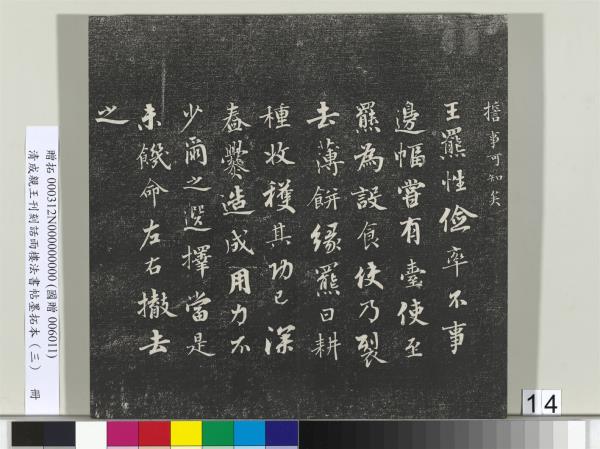 擔事可知矣
王羆性儉率不事
邊幅嘗有臺使至
羆為設食使乃裂
去薄餅緣羆曰耕
種收穫其功已深
舂爨造成用力不
少爾之選擇當是
未饑命左右撤去
之
贈拓 000312N000000000 (國贈 006011)
清成親王刊刻詒雨樓法書帖墨拓本（三） 冊
14